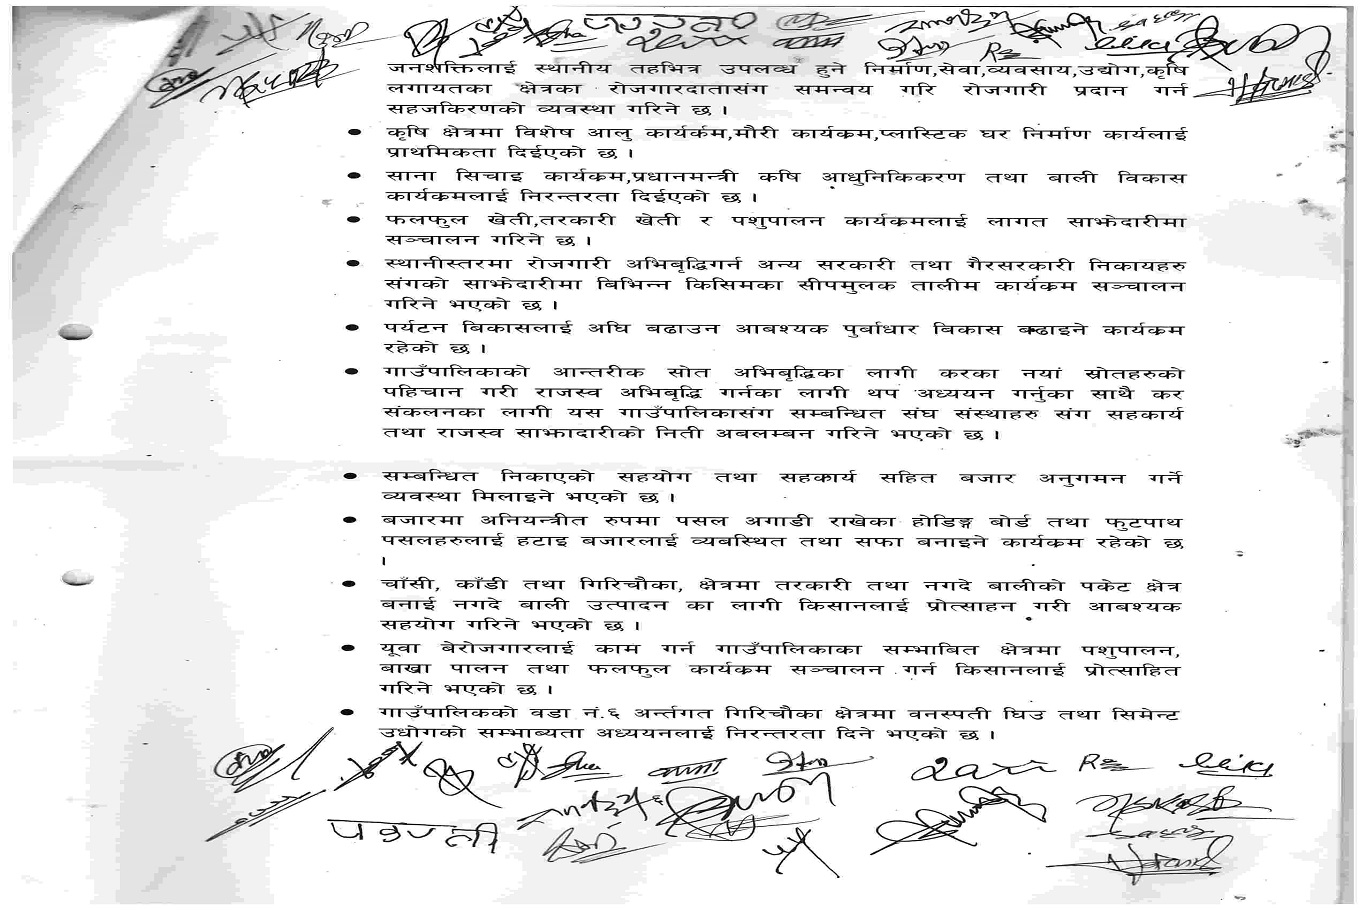 जनशक्तिलाई स्थानीय तहभित्र उपलब्ध हुने निर्माण,सेवा,व्यवसाय,उद्योग,कृषि
लगायतका क्षेत्रका रोजगारदातासंग समन्वय गरि रोजगारी प्रदान गर्न
सहजकिरणको व्यवस्था गरिने छ ।
• कृषि क्षेत्रमा विशेष आलु कार्यर्कम,मौरी कार्यक्रम,प्लास्टिक घर निर्माण कार्यलाई
प्राथमिकता दिईएको छ ।
• साना सिचाइ कार्यक्रम,प्रधानमन्त्री कषि आधुनिकिकरण तथा बाली विकास
कार्यक्रमलाई निरन्तरता दिईएको छ ।
• फलफुल खेती,तरकारी खेती र पशुपालन कार्यक्रमलाई लागत साझेदारीमा
सञ्चालन गरिने छ ।
• स्थानीस्तरमा रोजगारी अभिबृद्धिगर्न अन्य सरकारी तथा गैरसरकारी निकायहरु
संगको साझेदारीमा बिभिन्न किसिमका सीपमुलक तालीम कार्यक्रम सञ्चालन
गरिने भएको छ ।
• पर्यटन बिकासलाई अघि बढाउन आबश्यक पुर्बाधार विकास बढाइने कार्यक्रम
रहेको छ ।
• गाउँपालिकाको आन्तरीक सोत अभिबृद्धिका लागी करका नयां स्रोतहरुको
पहिचान गरी राजस्व अभिबृद्धि गर्नका लागी थप अध्ययन गर्नुका साथै कर
संकलनका लागी यस गाउँपालिकासंग सम्बन्धित संघ संस्थाहरु संग सहकार्य
तथा राजस्व साझादारीको निती अबलम्बन गरिने भएको छ ।
• सम्बन्धित निकाएको सहयोग तथा सहकार्य सहित बजार अनुगमन गर्ने
व्यवस्था मिलाइने भएको छ ।
• बजारमा अनियन्त्रीत रुपमा पसल अगाडी राखेका होडिङ्ग बोर्ड तथा फुटपाथ
पसलहरुलाई हटाइ बजारलाई व्यबस्थित तथा सफा बनाइने कार्यक्रम रहेको छ
।
• चाँसी, काँडी तथा गिरिचौका, क्षेत्रमा तरकारी तथा नगदे बालीको पकेट क्षेत्र
बनाई नगदे बाली उत्पादन का लागी किसानलाई प्रोत्साहन गरी आबश्यक
सहयोग गरिने भएको छ ।
• यूवा बेरोजगारलाई काम गर्न गाउँपालिकाका सम्भाबित क्षेत्रमा पशुपालन,
बाख्रा पालन तथा फलफुल कार्यक्रम सञ्चालन गर्न किसानलाई प्रोत्साहित
गरिने भएको छ ।
• गाउँपालिकको वडा नं.६ अर्न्तगत गिरिचौका क्षेत्रमा वनस्पती घिउ तथा सिमेन्ट
उधोगको सम्भाब्यता अध्ययनलाई निरन्तरता दिने भएको छ ।